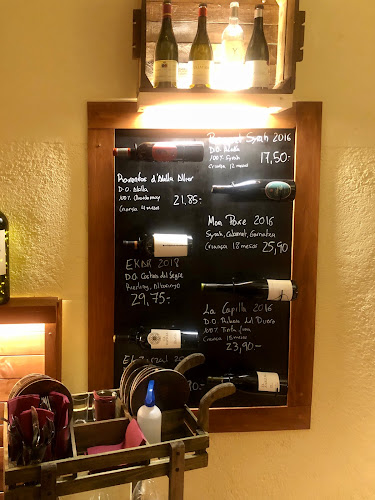 Syrah 2016
D.O. Alella
100% Syrah
Crianza 12 meses
17,50.-
d'Alella
D.O. Alella
100% Chardonnay
Crianza 4 meses
21,85.-
Mon Pare 2016
Syrah, Cabernet, Garnatxa
Crianza 18 meses
25,90
EKAM 2018
D.O. Costers del Segre
Riesling, Albarinyo
29,75.-
La Capilla 2016
D.O. Ribera del Duero
100% Tinta fina
Crianza 18 meses
23,90.-
2016